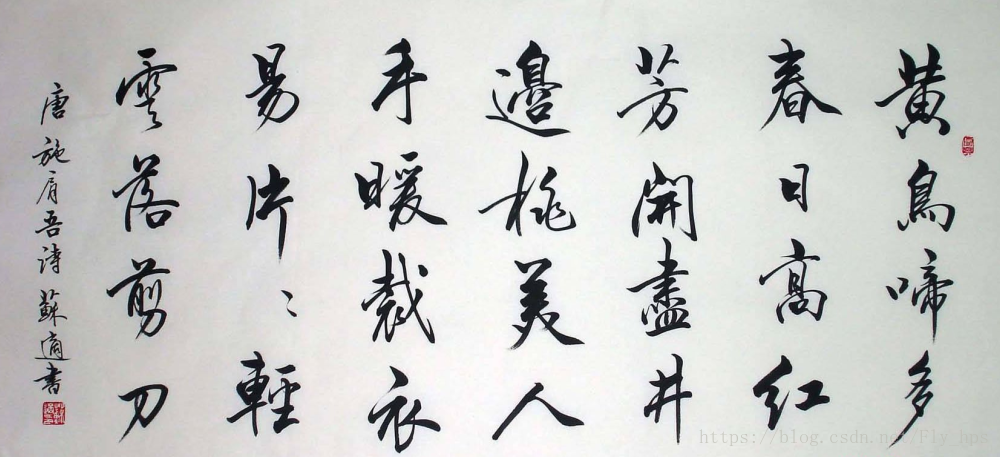 黄鳥啼多
春日高红
芳開盡井
邊桃美人
手暖裁衣
易片〻輕
雲落剪刀
唐施肩吾詩 蘇適書
https://blog.csdn.net/Fly_hps